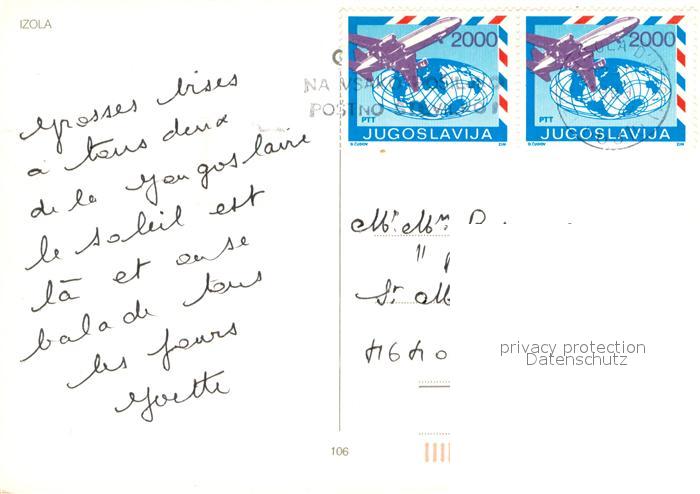 IZOLA
Grosses bises
à tous deux
de la Yougoslavie
le soleil est
là et on se
balade tous
les jours
Yvette
2000
PTT
JUGOSLAVIJA
D. ČUDOV
ZIN
2000
PTT
JUGOSLAVIJA
D. ČUDOV
ZIN
NA VSAKO
POŠTNO
Mr. Mme D
"
St M
46 40
privacy protection
Datenschutz
106